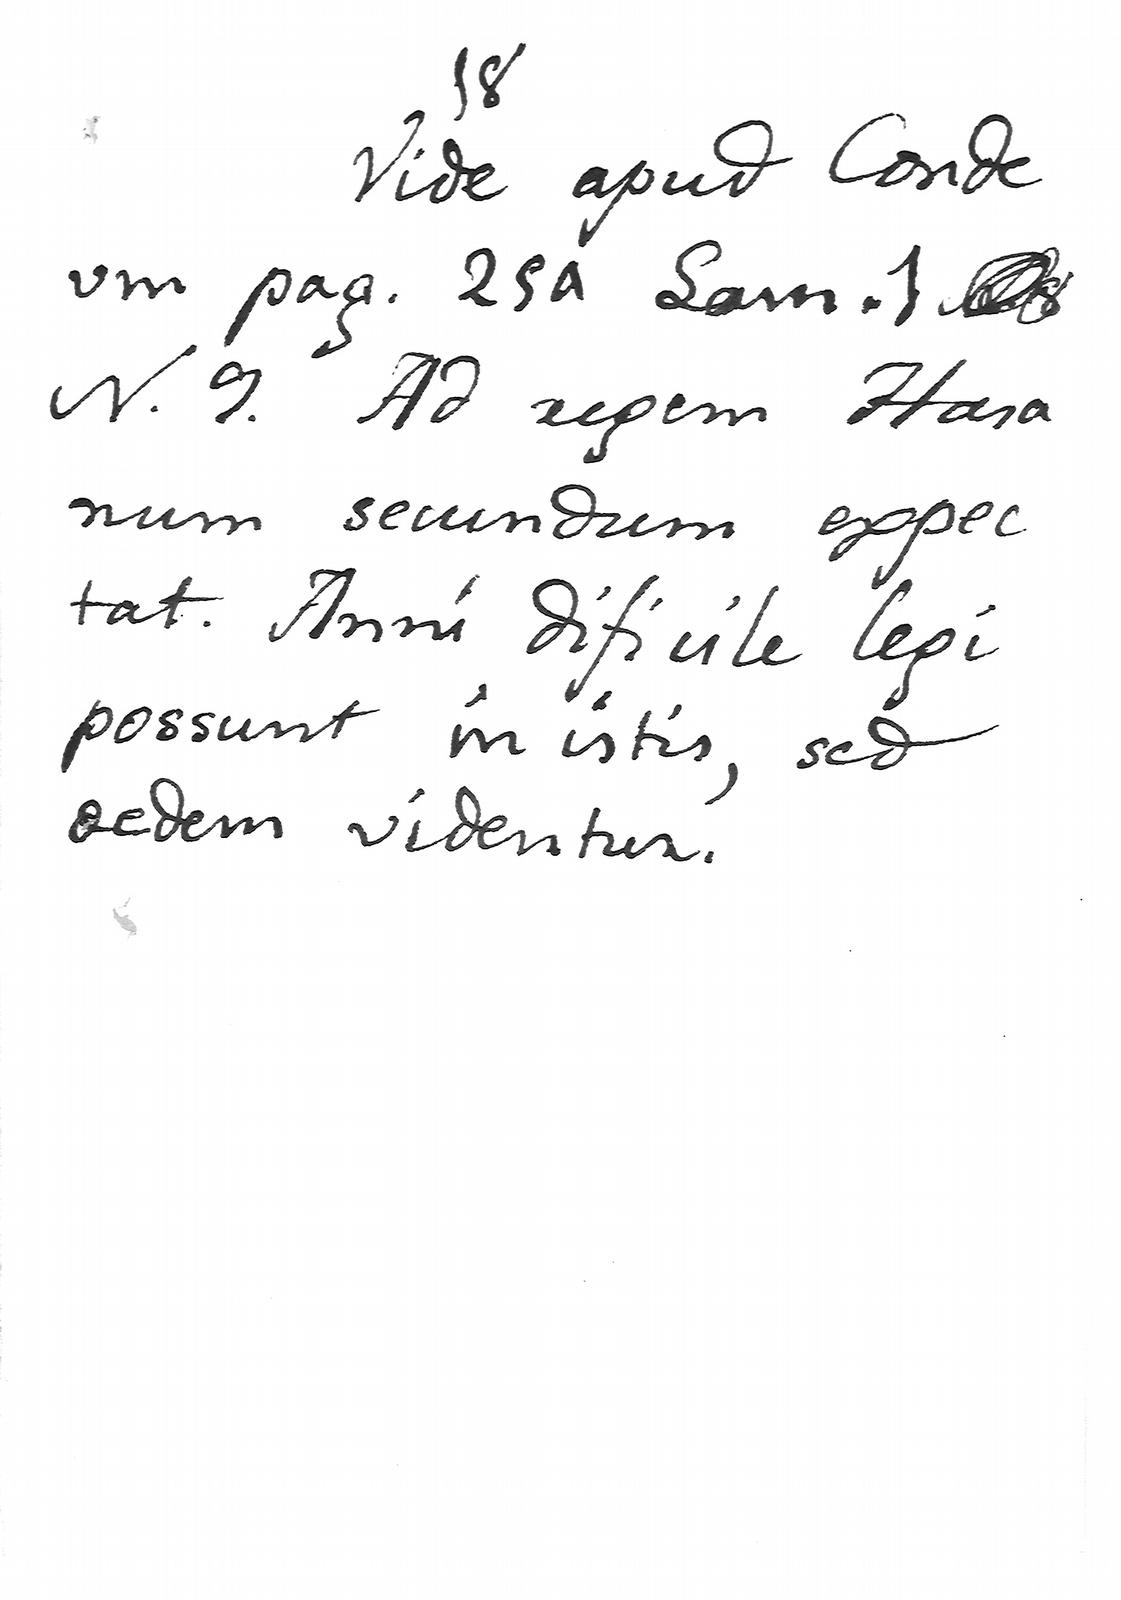 18
Vide apud Conde
um pag. 259 Lam. 1
N. 9. Ad regem Hasa
num secundum expec
tat. Anni dificile legi
possunt in istis, sed
aedem videntur.